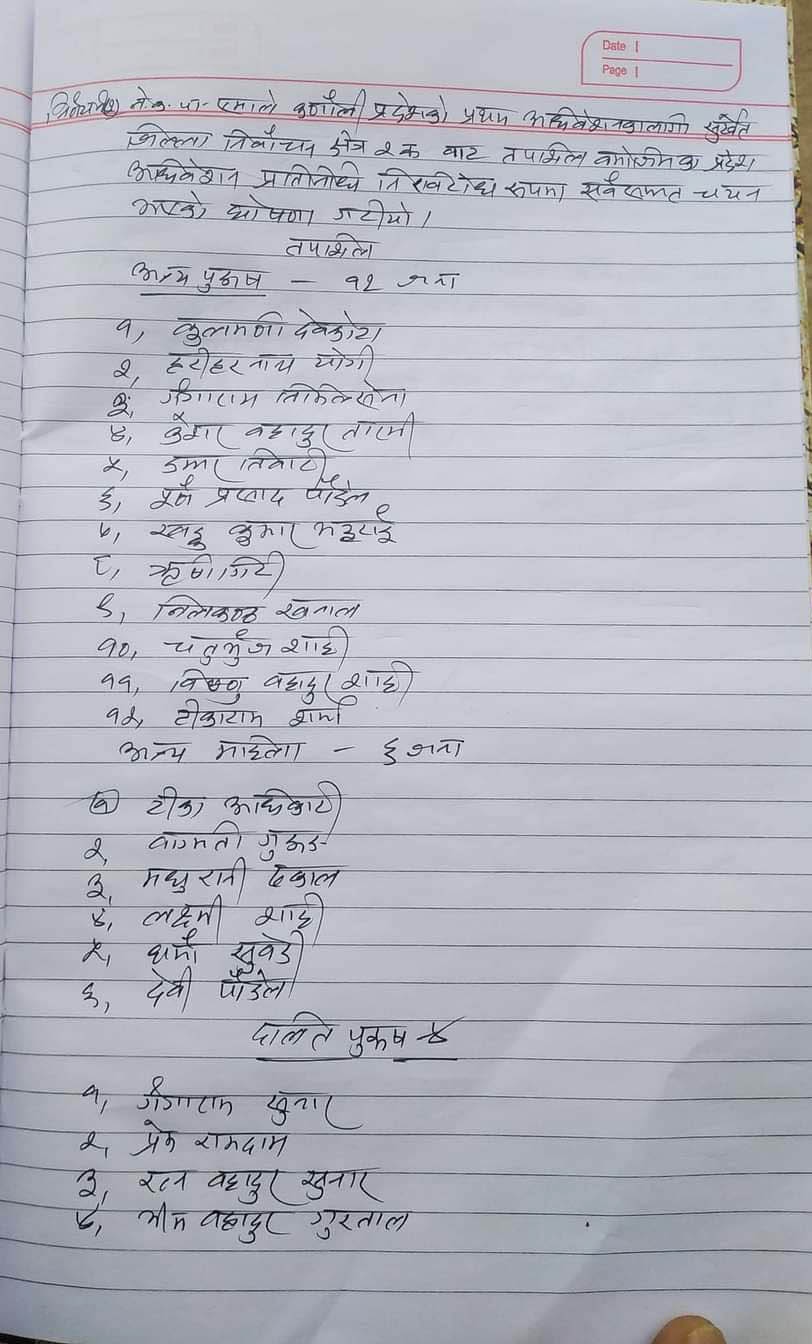 Date
Page
ने.क.पा. एमाले कर्णाली प्रदेशको प्रथम अधिवेशनकालागी सुर्खेत
जिल्ला निर्वाचन क्षेत्र २ क बाट तपाशिल बमोजिमका प्रदेश
अधिवेशन प्रतिनिधि निरविरोध रुपमा सर्वसम्मत चयन
भएको घोषणा गरीयो।
तपाशिल
अन्य पुरूष – १२ जना
१, कुलामणी देवकोटा
२, हरीहर नाथ योगी
३, गंगाराम तिमिल्सेना
४, केशर बहादुर तारामी
५, डम्मर तिवारी
६, प्रसाद पौडेल
७, खड्ग कुमार भट्टराई
८, ऋषी गिरी
९, निलकण्ठ खनाल
१०, चतुर्भुज शाही
११, विष्णु बहादुर शाही
१२, टीकाराम शर्मा
अन्य महिला – ६ जना
१ टीका अधिकारी
२, वाग्मती गुरूङ
३, मधु रानी ढकाल
४, लक्ष्मी शाही
५, धर्मा सुवेदी
६, देवी पौडेल
दलित पुरूष – ४
१, गंगाराम सुनार
२, प्रेम रामदाम
३, रत्न बहादुर सुनार
४, भीम बहादुर गुरताल